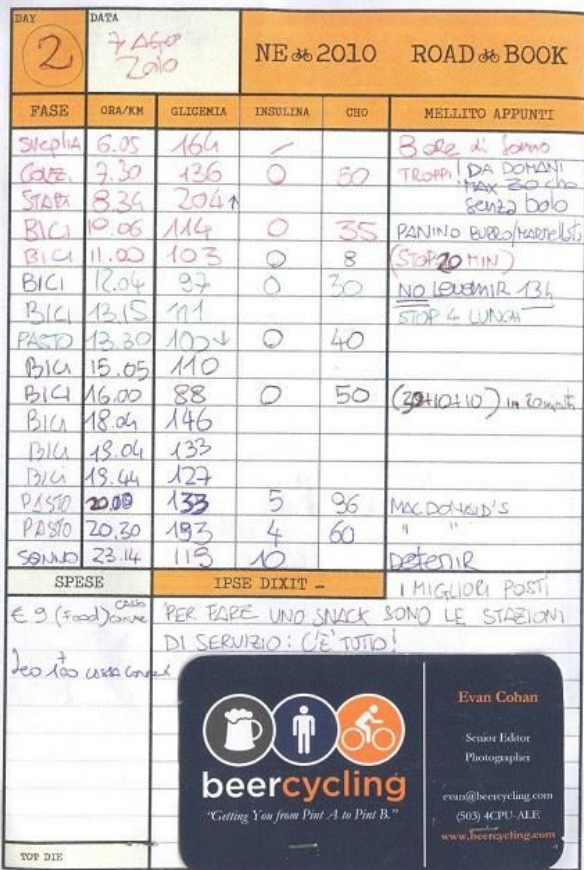 DAY
2
DATA
7 AGO
2010
NE 2010 ROAD BOOK
FASE ORA/KM GLICEMIA INSULINA CHO MELLITO APPUNTI
SVEGLIA 6.05 164 - 8 ore di sonno
COLAZ. 7.30 136 0 50 TROPPI! DA DOMANI
MAX 30 cho
senza bolo
START 8.34 204↑
BICI 10.06 114 0 35 PANINO BURRO/MARMELLATA
BICI 11.00 103 0 8 (STOP 20 MIN)
BICI 12.04 97 0 30 NO LEVEMIR 13h
BICI 13.15 111 STOP 4 LUNCH
PASTO 13.30 100↓ 0 40
BICI 15.05 110
BICI 16.00 88 0 50 (30+10+10) in 20 minuti
BICI 18.04 146
BICI 19.04 133
BICI 19.44 127
PASTO 20.00 133 5 96 MAC DONALD'S
PASTO 20.30 193 4 60 " "
SONNO 23.14 119 10 DETEMIR
SPESE IPSE DIXIT – I MIGLIORI POSTI
€ 9 (Food) CASSA comune PER FARE UNO SNACK SONO LE STAZIONI
DI SERVIZIO: C'E' TUTTO!
+
100 cassa
beercycling
"Getting You from Pint A to Pint B."
Evan Cohan
Senior Editor
Photographer
evan@beercycling.com
(503) 4CPU-ALE
www.beercycling.com
TOT DIE